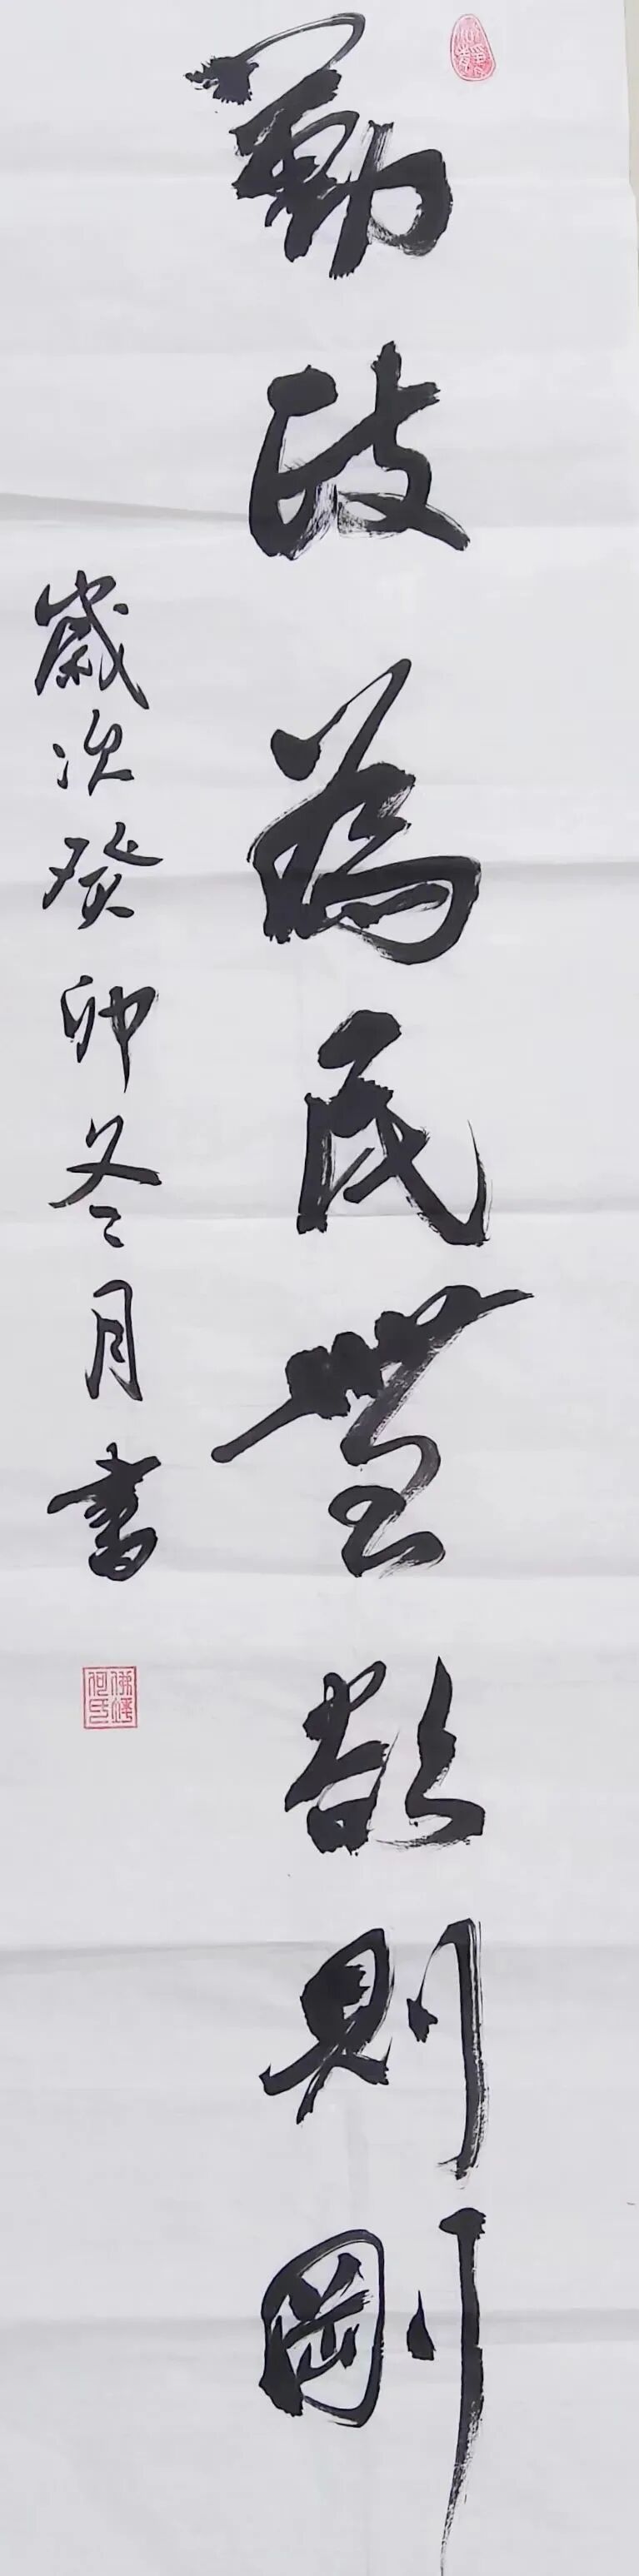 勤政為民無欲則剛
歲次癸卯冬月書